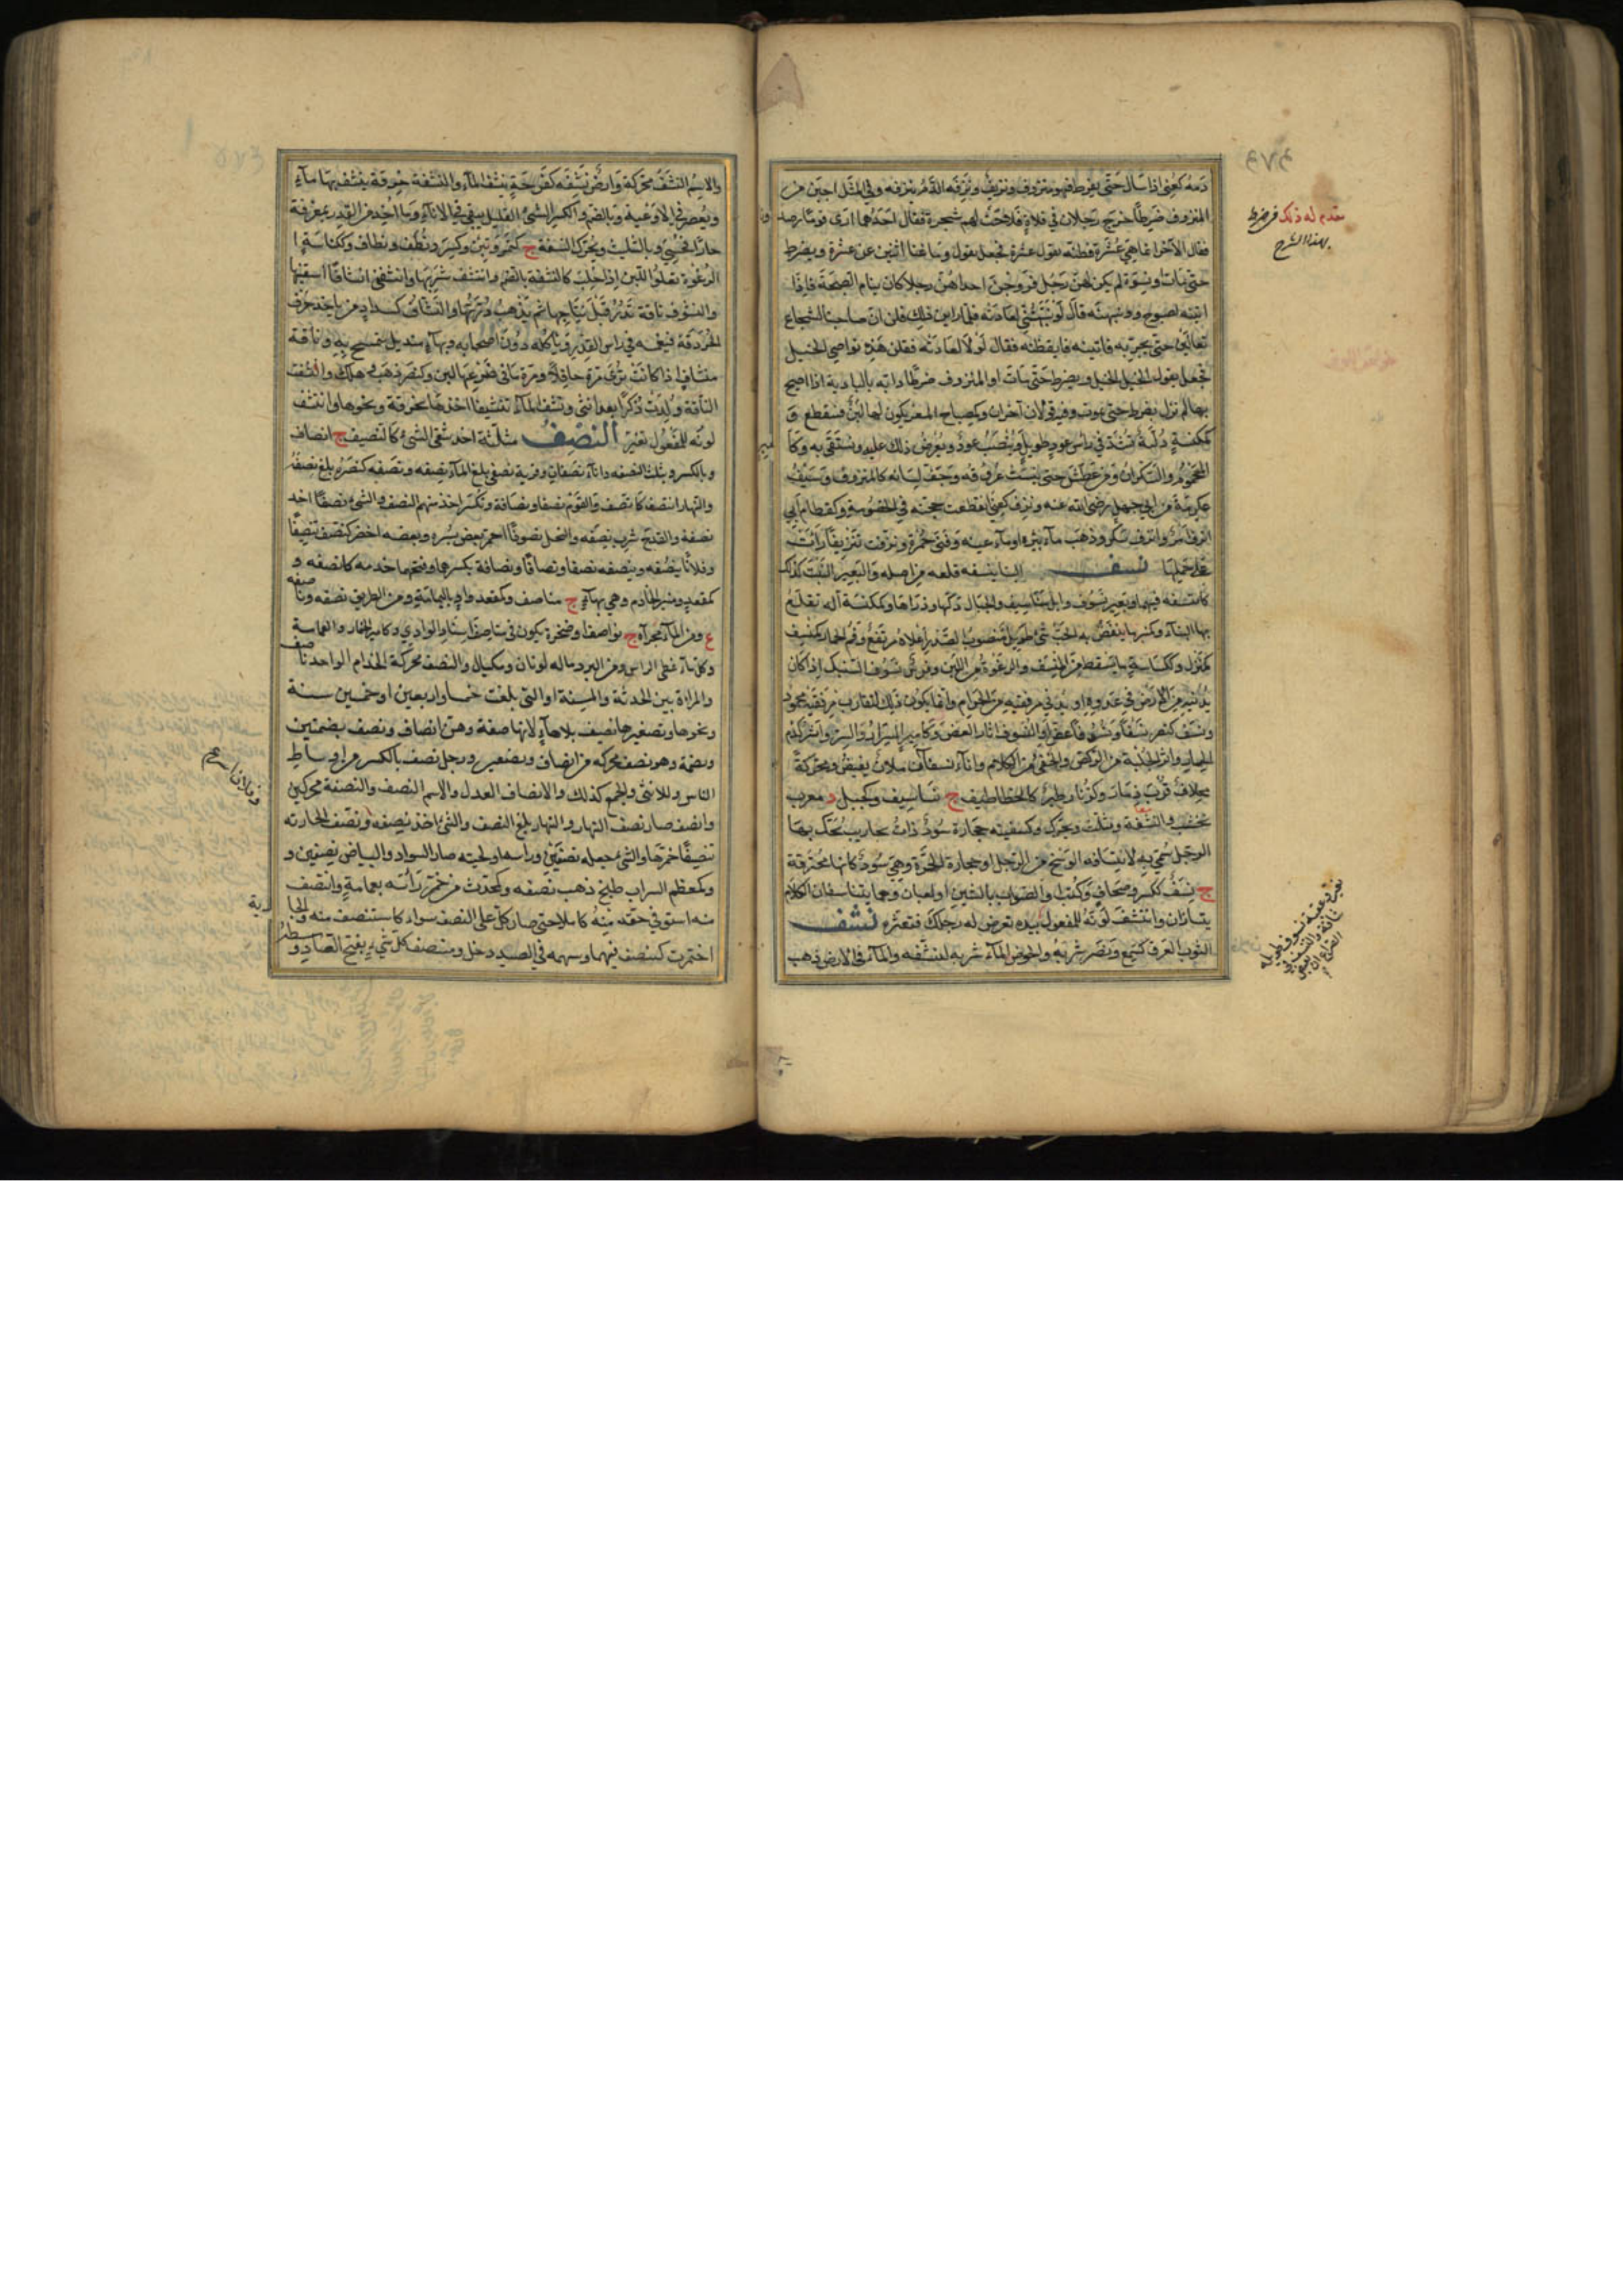 دمه كعني اذا سال حتى يفرط فهو منزوف ونزيف ونزفه الدم ينزفه وفي المثل اجبن من
المنزوف ضرطا خرج رجلان في فلاة فلاحت لهم شجرة فقال احدهما ارى قوما رصدونا
فقال الآخر انما هي عشرة فظنه يقول عشرة فجعل يقول وما غنا اثنين عن عشرة ويضرط
حتى مات او نسوة لم يكن لهن رجل فزوجن احداهن رجلا كان ينام الصبحة فاذا
اتينه بصبوح ونبهنه قال لو نبهتنني لعادية فلما راين ذلك قلن ان صاحبنا لشجاع
تعالين حتى نجربه فاتينه فايقظنه فقال لولا لعادية فقلن هذه نواصي الخيل
فجعل يقول الخيل الخيل ويضرط حتى مات او المنزوف ضرطا دابة بالبادية اذا صيح
بها لم تزل تضرط حتى تموت وفيه قولان آخران وكمصباح المعز يكون لها لبن فينقطع و
كمكنسة دلية تشد في راس عود طويل وينصب عود ويعرض ذلك عليه ويستقى به وكامير
المحموم والسكران ومن عطش حتى يبست عروقه وجف لسانه كالمنزوف وسيف
عكرمة بن ابي جهل رضي الله عنه ونزف كعني انقطعت حجته في الخصومة وكقطام اي
انزف امر وانزف سكر وذهب ماء بئره او ماء عينه وفني خمره ونزفت تنزيفا رات
على حملها نسف البناء ينسفه قلعه من اصله والبعير النبت كذلك
كانتسفه فيهما وبعير نسوف وابل مناسيف والجبال دكها وذراها وكمكنسة آلة تقلع
بها البناء وكمنبر ما ينفض به الحب شيء طويل منصوب الصدر اعلاه مرتفع وفم الحمار كمنسف
كمنزل وككناسة ما يسقط من المنسف والرغوة من اللبن وفرس نسوف السنبك اذا كان
يدنيه من الارض في عدوه او يدني مرفقيه من الحزام وانما يكون ذلك لتقارب مرفقيه محمود
ونسف كنصر نسفا ونسوفا عض او النسوف آثار العض وكامير السرار والسر واثر كدم
الحمار واثر الحلبة من الركض والخفي من الكلام واناء نسفان ملآن يفيض ومحركة
بخلافه قرب نسفان وكزنار طير كالخطاطيف ج نساسيف وكجبل د معرب
نخشب والنسفة وتثلث ويحرك وكسفينة حجارة سود ذات نخاريب تحك بها
الرجل سمي به لانتسافه الوسخ من الرجل او حجارة الحرة وهي سود كانها محترقة
ج نسف ككسر وصحاف وكتب او الصواب بالشين او لعبان وهما يتناسفان الكلام
يتساران وانتسف لونه للمفعول بيده تعرض له رجلك فتعثره نشف
الثوب العرق كسمع ونصر شربه والحوض الماء شربه لتنشفه والماء في الارض ذهب
تقدم له ذلك في ضرط
بهذا الشرح
والاسم النشف محركة وارض نشفة كفرحة تنشف الماء والنشفة خرقة ينشف بها ماء
ويعصر في الاوعية وبالضم والكسر الشيء القليل يبقى في الاناء وما اخذ من القدر بمغرفة
حارا فحسي وبالتثليث ويحرك النسفة ج كتمر وتين وكسر ونطف ونطاف وككناسة
الرغوة تعلو اللبن اذا حلب كالنشفة بالضم وانتشف شربها وانشفني انشافا اسقنيها
والنشوف ناقة تدر قبل نتاجها ثم تذهب درتها والنشاف كشداد من ياخذ حرف
الجردقة فيغمسه في راس القدر وياكله دون اصحابه وبهاء منديل يتمسح به وناقة
منشاف اذا كانت ترى مرة حافلا ومرة ما في ضرعها لبن وكنصر ذهب وهلك وانشفت
الناقة ولدت ذكرا بعد انثى ونشف الماء تنشيفا اخذه بخرقة ونحوها وانتشف
لونه للمفعول تغير النصف مثلثة احد شقي الشيء كالنصيف ج انصاف
وبالكسر ويثلث النصفة واناء نصفان وقربة نصفى بلغ الماء نصفه ونصفه كنصره بلغ نصفه
والنهار انتصف كانصف والقوم نصفا ونصافة وتكسر اخذ منهم النصف والشيء نصفا اخذ
نصفه والقدح شرب نصفه والنخل نصوفا احمر بعض بسره وبعضه اخضر كنصف تنصيفا
وفلانا ينصفه وينصفه نصفا ونصافا ونصافة بكسرهما وفتحهما خدمه كانصفه و
كمقعد ومنبر الخادم وهي بهاء ج مناصف وكمقعد واد باليمامة ومن الطريق نصفه وناصفة
ع ومن الماء مجراه ج نواصف او صخرة تكون في مناصف اسناد الوادي وكامير الخمار والعمامة
وكل ما غطى الراس ومن البرد ما له لونان ومكيال والنصف محركة الخدام الواحد ناصف
والمراة بين الحدثة والمسنة او التي بلغت خمسا واربعين او خمسين سنة
ونحوها وتصغيرها نصيف بلا هاء لانها صفة وهن انصاف ونصف بضمتين
وبضمة وهو نصف محركة من انصاف ونصفين ورجل نصف بالكسر من اوساط
الناس وللانثى والجمع كذلك والانصاف العدل والاسم النصف والنصفة محركتين
وانصف صار نصف النهار والنهار بلغ النصف والشيء اخذ نصفه ونصف الجارية
تنصيفا خمرها والشيء جعله نصفين وراسه ولحيته صار السواد والبياض نصفين و
وكمعظم الشراب طبخ ذهب نصفه وكمحدث من خمر راسه بعمامة وانتصف
منه استوفى حقه منه كاملا حتى صار كل على النصف سواء كاستنصف منه والجارية
اختمرت كتنصف فيهما وسهمه في الصيد دخل ومنتصف كل شيء بفتح الصاد و
وفلانا اسرع